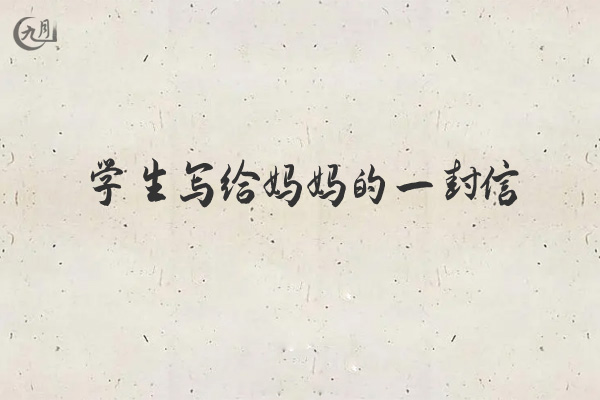 九月
学生写给妈妈的一封信